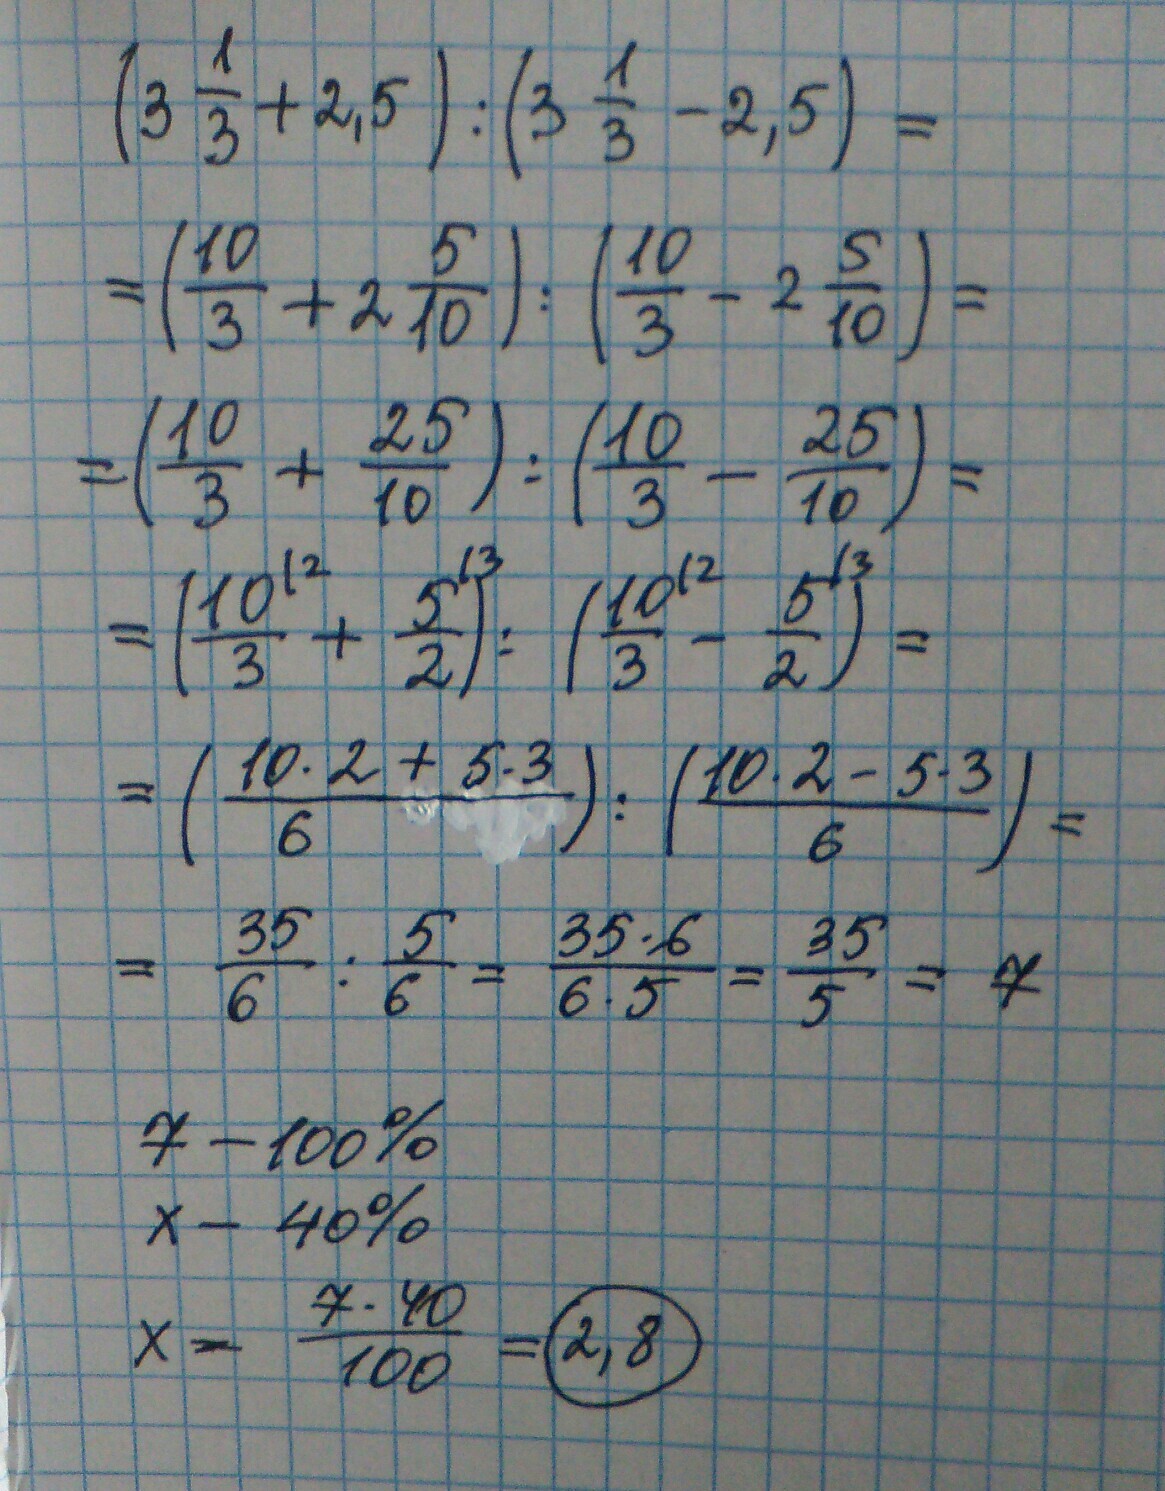 (3 1/3 + 2,5) : (3 1/3 - 2,5) =
= (10/3 + 2 5/10) : (10/3 - 2 5/10) =
= (10/3 + 25/10) : (10/3 - 25/10) =
= (10/3 (2 + 5/2 (3) : (10/3 (2 - 5/2 (3) =
= (10·2 + 5·3/6) : (10·2 - 5·3/6) =
= 35/6 : 5/6 = 35·6/6·5 = 35/5 = 7
7 - 100%
x - 40%
x - 7·40/100 = 2,8